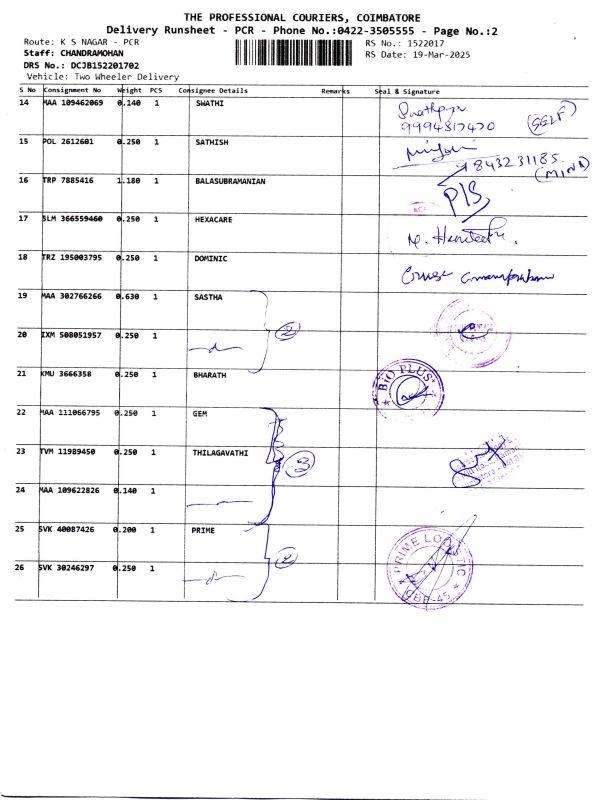 THE PROFESSIONAL COURIERS, COIMBATORE
Delivery Runsheet - PCR - Phone No.:0422-3505555 - Page No.:2
Route: K S NAGAR - PCR RS No.: 1522017
Staff: CHANDRAMOHAN RS Date: 19-Mar-2025
DRS No.: DCJB152201702
Vehicle: Two Wheeler Delivery
S No Consignment No Weight PCS Consignee Details Remarks Seal & Signature
14 MAA 109462069 0.140 1 SWATHI
9994817470 (SELF)
15 POL 2612601 0.250 1 SATHISH
9843231185.
16 TRP 7885416 1.180 1 BALASUBRAMANIAN (MIND)
P/S
17 SLM 366559460 0.250 1 HEXACARE
18 TRZ 195003795 0.250 1 DOMINIC
19 MAA 302766266 0.630 1 SASTHA
20 IXM 508051957 0.250 1 2
21 KMU 3666358 0.250 1 BHARATH BIO PLUS
22 MAA 111066795 0.250 1 GEM
23 TVM 11989450 0.250 1 THILAGAVATHI 3
24 MAA 109622826 0.140 1
25 SVK 40087426 0.200 1 PRIME 2
26 SVK 30246297 0.250 1 PRIME LOGISTIC
CBE-45